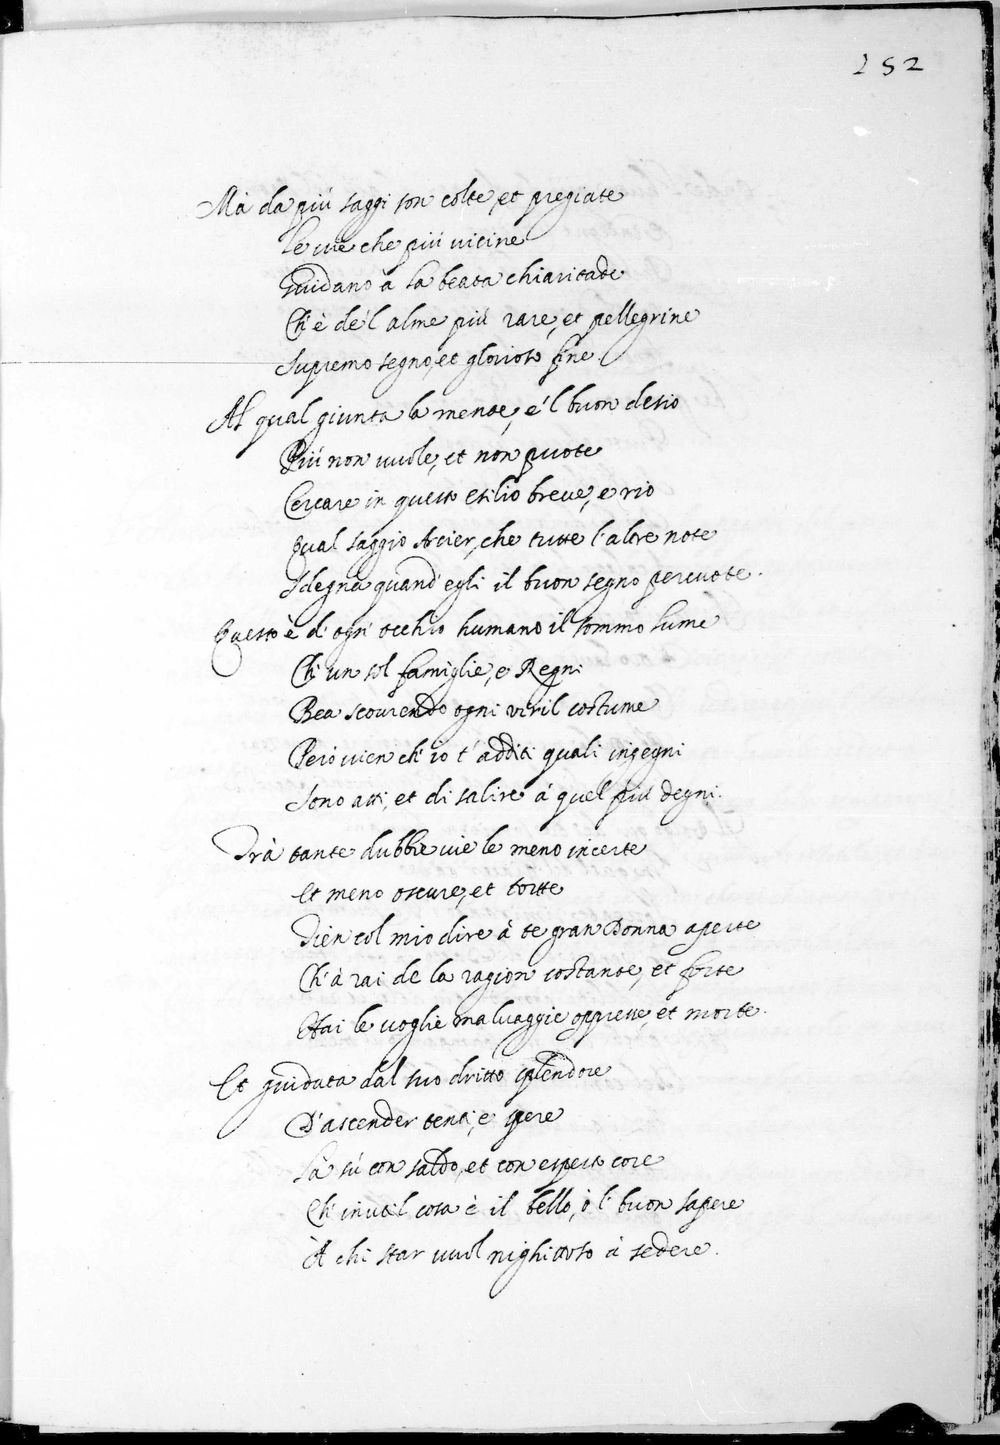 252
Mà da più saggi son colte, et pregiate
Le vie che più vicine
Guidano à la beata chiaritade
Ch'è de'l alme più rare, et pellegrine
Supremo segno, et glorioso fine.
Al qual giunta la mente, e'l buon desio
Più non vuole, et non puote
Cercare in questo esilio breue, e rio
Qual saggio Arcier, che tutte l'altre note
Sdegna quand'egli il buon segno percuote.
Questo è d'ogn'occhio humano il sommo lume
Ch'un sol famiglie, e Regni
Bea scourendo ogni viril costume
Però vien ch'io t'additi quali ingegni
Sono atti, et di salire à quel più degni.
Trà tante dubbie vie le meno incerte
Et meno oscure, et torte
Dièn col mio dire à te gran Donna aperte
Ch'à rai de la ragion costante, et forte
Hai le voglie maluaggie oppresse, et morte.
Et guidata dal suo dritto splendore
D'ascender tenti, e spere
Là sù con saldo, et con esperto core
Ch'inutil cosa è il bello, ò l'buon sapere
À chi star vuol nighittoso à sedere.